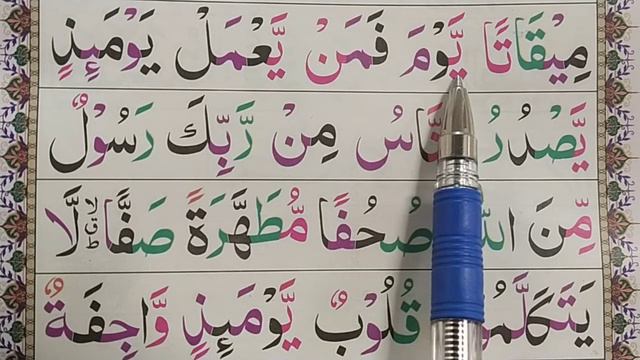 مِيْقَاتًا يَّوْمَ فَمَنْ يَّعْمَلْ يَوْمَئِذٍ
يَّصْدُرُ النَّاسُ مِنْ رَّبِّكَ رَسُوْلٌ
مِّنَ اللّٰهِ صُحُفًا مُّطَهَّرَةً صَفًّا لَّا
يَتَكَلَّمُوْنَ قُلُوْبٌ يَّوْمَئِذٍ وَّاجِفَةٌ